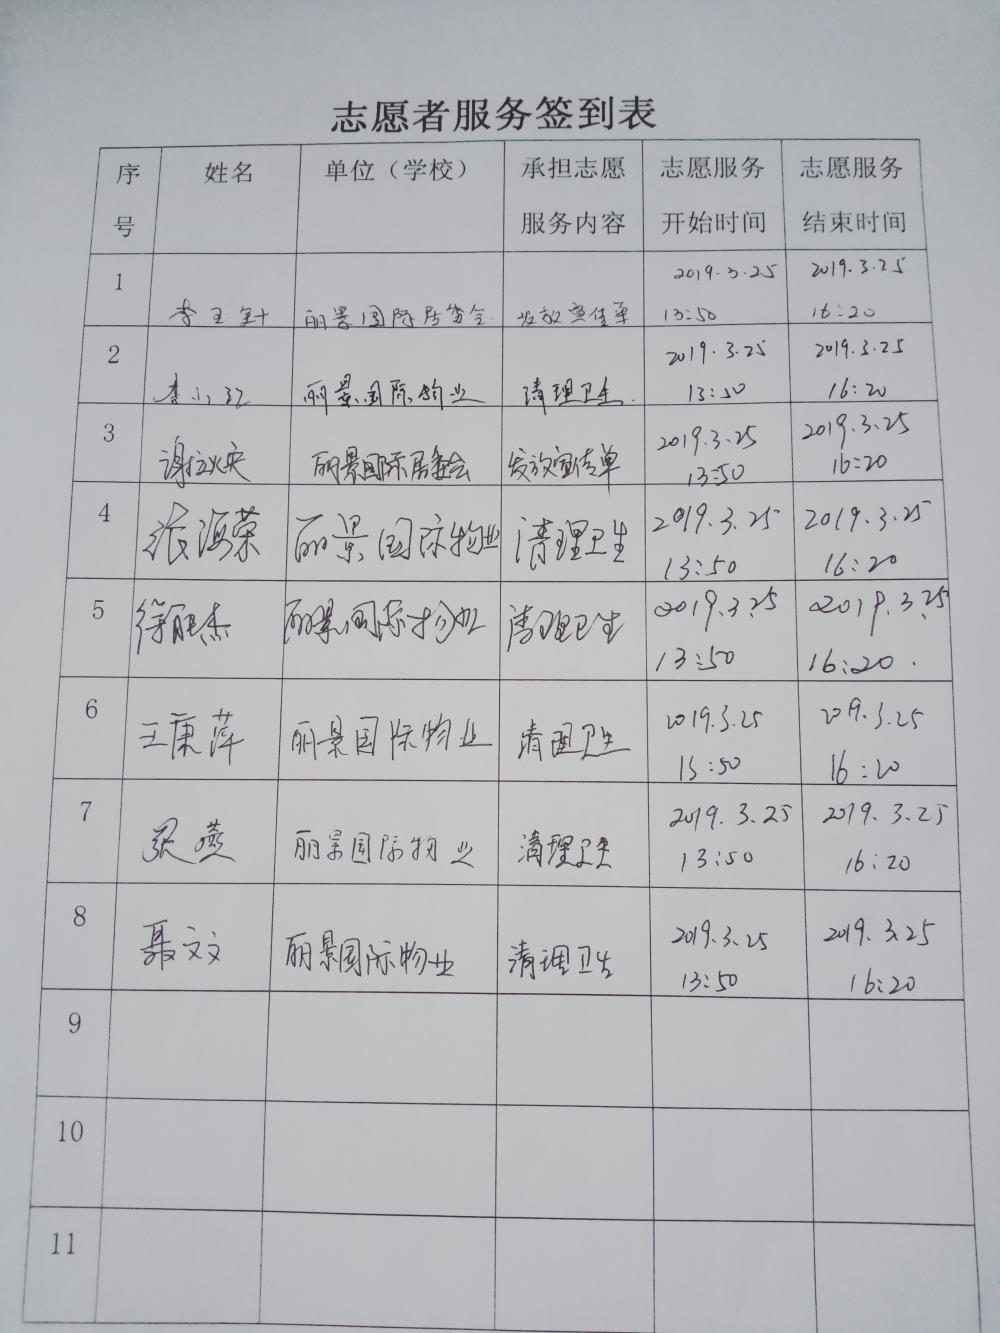 志愿者服务签到表
序号 姓名 单位（学校） 承担志愿服务内容 志愿服务开始时间 志愿服务结束时间
1 李玉针 丽景国际居委会 发放宣传单 2019.3.25 13:50 2019.3.25 16:20
2 李小红 丽景国际物业 清理卫生 2019.3.25 13:50 2019.3.25 16:20
3 谢 丽景国际居委会 发放宣传单 2019.3.25 13:50 2019.3.25 16:20
4 张海荣 丽景国际物业 清理卫生 2019.3.25 13:50 2019.3.25 16:20
5 徐胜杰 丽景国际物业 清理卫生 2019.3.25 13:50 2019.3.25 16:20
6 王康萍 丽景国际物业 清理卫生 2019.3.25 13:50 2019.3.25 16:20
7 张燕 丽景国际物业 清理卫生 2019.3.25 13:50 2019.3.25 16:20
8 聂文文 丽景国际物业 清理卫生 2019.3.25 13:50 2019.3.25 16:20
9
10
11